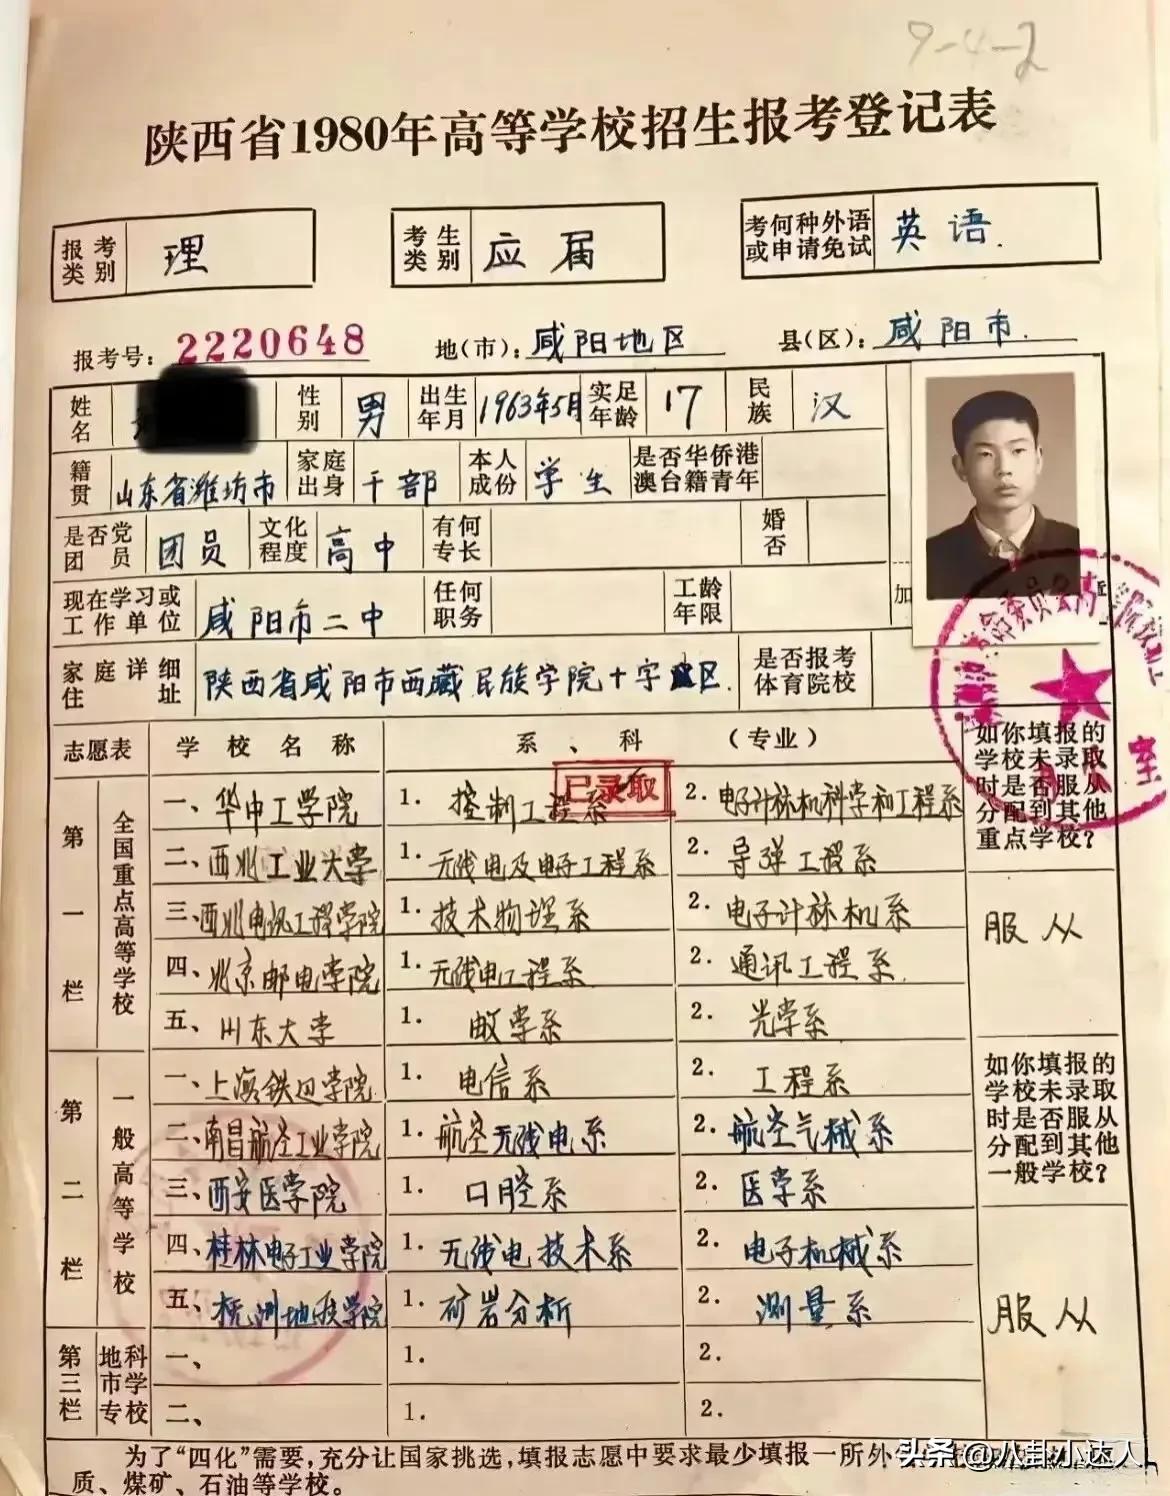 9-4-2
陕西省1980年高等学校招生报考登记表
报考类别 理 考生类别 应届 考何种外语或申请免试 英语.
报考号: 2220648 地(市): 咸阳地区 县(区): 咸阳市.
姓名 性别 男 出生年月 1963年5月 实足年龄 17 民族 汉
籍贯 山东省潍坊市 家庭出身 干部 本人成份 学生 是否华侨港澳台籍青年
是否党团员 团员 文化程度 高中 有何专长 婚否
现在学习或工作单位 咸阳市二中 任何职务 工龄年限 加
家庭详细住址 陕西省咸阳市西藏民族学院十字区. 是否报考体育院校
志愿表 学校名称 系、科 (专业) 如你填报的学校未录取时是否服从分配到其他重点学校?
已录取
第一栏 全国重点高等学校 一、华中工学院 1. 控制工程系 2. 电子计标机科学和工程系
二、西北工业大学 1. 无线电及电子工程系 2. 导弹工程系
三、西北电讯工程学院 1. 技术物理系 2. 电子计标机系 服从
四、北京邮电学院 1. 无线电工程系 2. 通讯工程系
五、山东大学 1. 学系 2. 光学系
第二栏 一般高等学校 一、上海铁道学院 1. 电信系 2. 工程系 如你填报的学校未录取时是否服从分配到其他一般学校?
二、南昌航空工业学院 1. 航空无线电系 2. 航空气械系
三、西安医学院 1. 口腔系 2. 医学系
四、桂林电子工业学院 1. 无线电技术系 2. 电子机械系
五、杭州地质学院 1. 矿岩分析 2. 测量系 服从
第三栏 地市专科学校 一、 1. 2.
二、 1. 2.
为了“四化”需要,充分让国家挑选,填报志愿中要求最少填报一所外
质、煤矿、石油等学校。
头条@八卦小达人